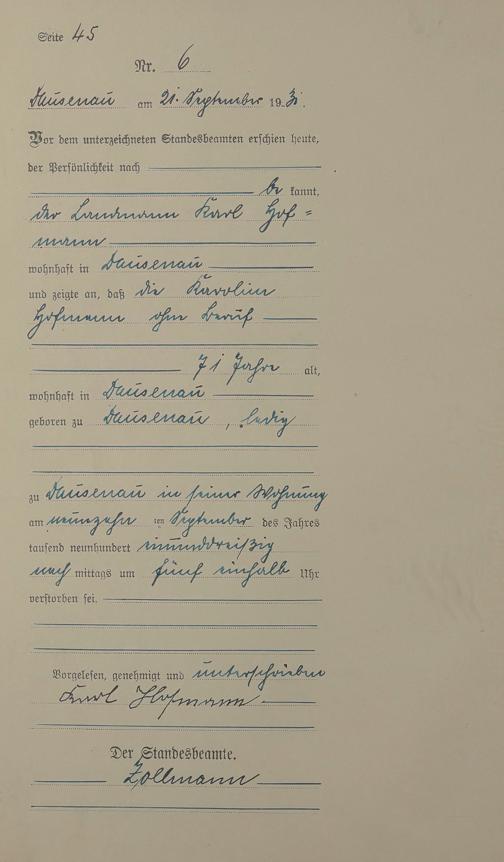 Seite 45
Nr. 6
Dausenau am 21. September 1931.
Vor dem unterzeichneten Standesbeamten erschien heute,
der Persönlichkeit nach
be kannt,
der Landmann Karl Hof=
mann
wohnhaft in Dausenau
und zeigte an, daß die Karolin
Hofmann ohne Beruf
71 Jahre alt,
wohnhaft in Dausenau
geboren zu Dausenau, ledig
zu Dausenau in seiner Wohnung
am neunzehn ten September des Jahres
tausend neunhundert einunddreißig
nach mittags um fünf einhalb Uhr
verstorben sei.
Vorgelesen, genehmigt und unterschrieben
Karl Hofmann
Der Standesbeamte.
Zollmann